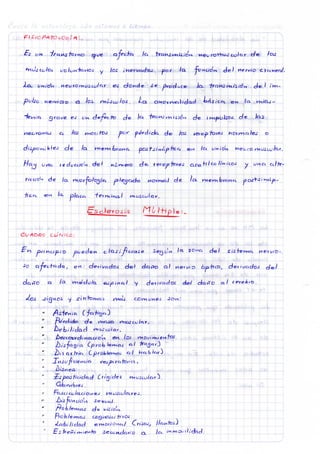 FISIOPATOLOGIA:
Es un transtorno que afecta la transmisión neuromuscular de los
músculos voluntarios y los inervados por la función del nervio craneal.
La unión neuromuscular es donde se produce la transmisión del im-
pulso nervioso a los músculos. La anormalidad básica en la mias-
tenia grave es un defecto de la transmisión de impulsos de las
neuronas a los músculos por pérdida de los receptores normales o
disponibles de la membrana postsináptica en la unión neuromuscular.
Hay una reducción del número de receptores acetilcolínicos y una alte-
ración de la morfología plegada normal de la membrana postsináp-
tica en la placa terminal muscular.
Esclerosis Múltiple:
CUADRO CLÍNICO:
En principio pueden clasificarse según la zona del sistema nervio-
so afectada, en derivados del daño al nervio óptico, derivados del
daño a la médula espinal y derivados del daño al cerebro.
Los signos y síntomas más comunes son:
- Astenia (fatiga)
- Pérdida de masa muscular.
- Debilidad muscular.
- Descoordinación en los movimientos
- Disfagia (problemas al tragar)
- Disartria (problemas al hablar).
- Insuficiencia respiratoria.
- Disnea
- Espasticidad (rigidez muscular)
- Calambres
- Fasciculaciones musculares.
- Disfunción sexual.
- Problemas de visión.
- Problemas cognoscitivos
- Labilidad emocional (risas, llantos)
- Estreñimiento secundario a la inmovilidad.